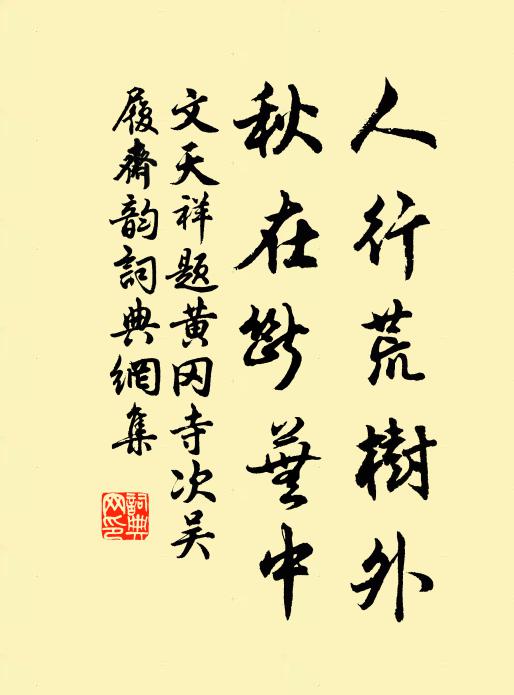 人行荒樹外
秋在斷蕪中
文天祥題黄冈寺次吴
履齋韵詞典網集
詞典網印